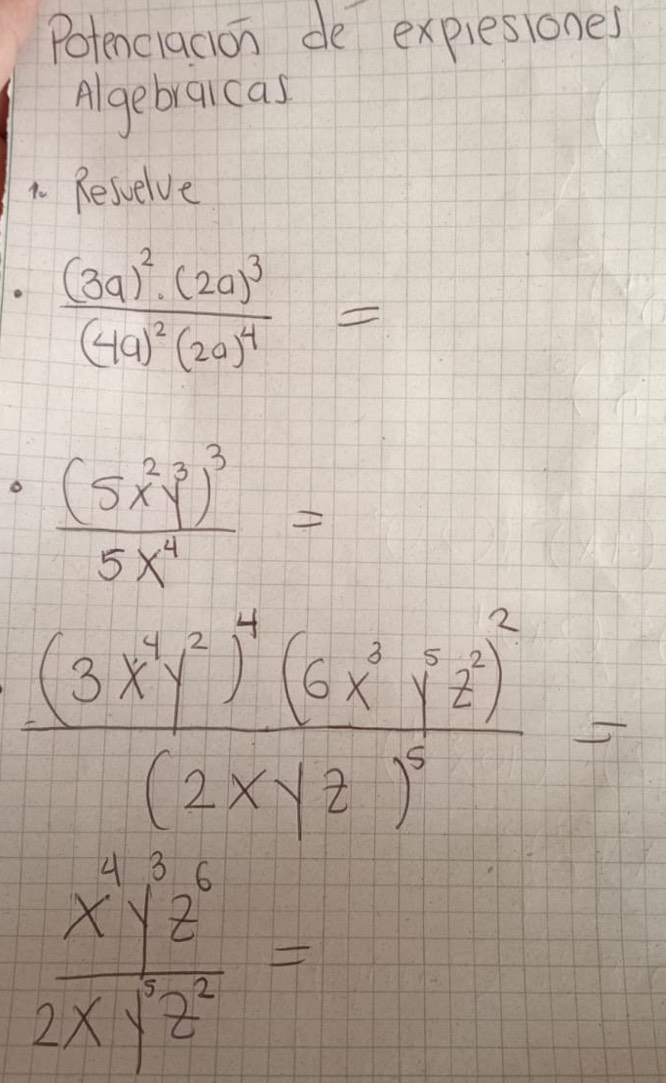 Potenciación de expresiones
Algebraicas
1. Resuelve
• (3a)².(2a)³ / (4a)²(2a)⁴ =
• (5x²y³)³ / 5x⁴ =
• (3x⁴y²)⁴ (6x³y⁵z²)² / (2xyz)⁵ =
x⁴y³z⁶ / 2xy⁵z² =